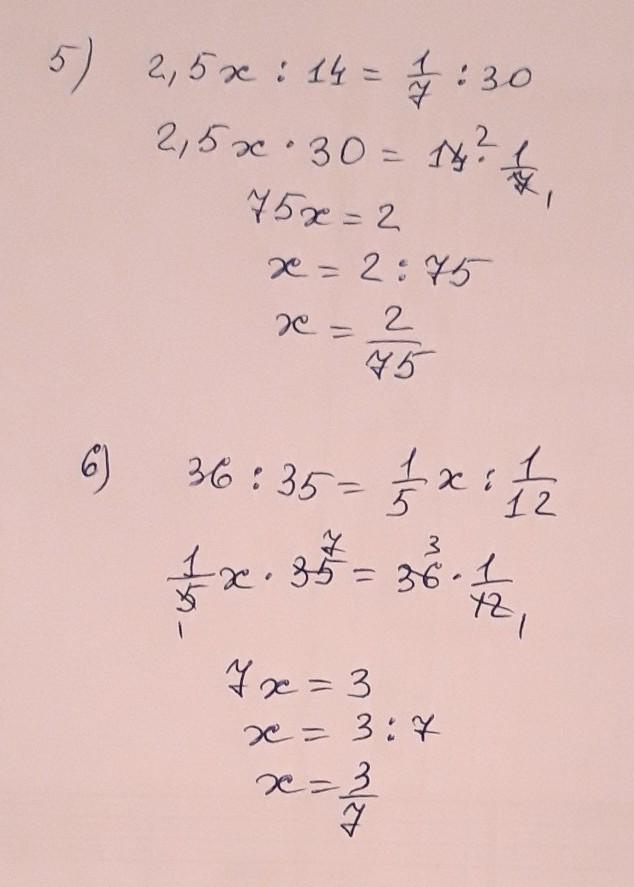 5) 2,5x : 14 = 1/7 : 30
2,5x · 30 = 14 2 · 1/7 1
75x = 2
x = 2 : 75
x = 2/75
6) 36 : 35 = 1/5 x : 1/12
1/5 1 x · 35 7 = 36 3 · 1/12 1
7x = 3
x = 3 : 7
x = 3/7